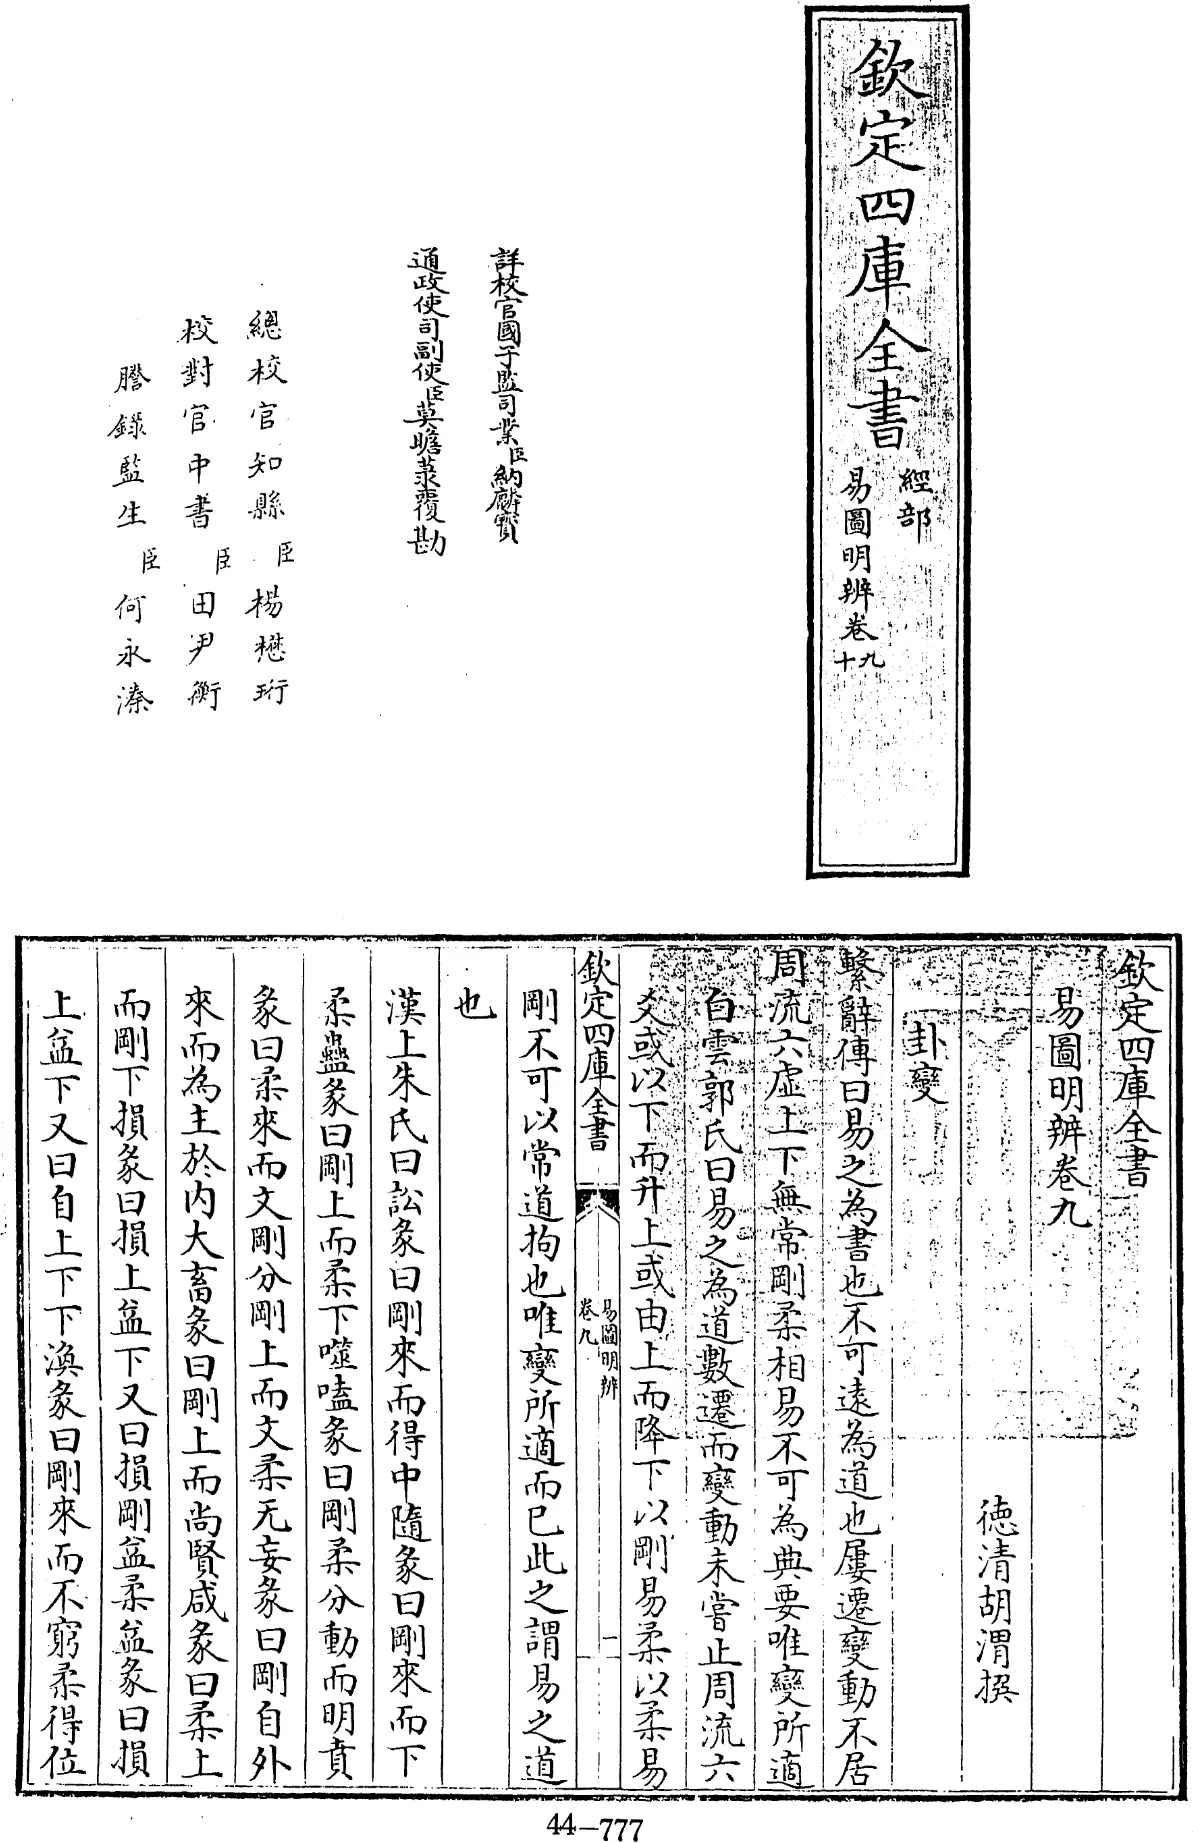 欽定四庫全書
經部
易圖明辨卷九
十
詳校官國子監司業臣納麟寶
通政使司副使臣莫瞻菉覆勘
總校官知縣臣楊懋珩
校對官中書臣田尹衡
謄錄監生臣何永溱
欽定四庫全書
易圖明辨卷九
德清胡渭撰
卦變
繫辭傳曰易之為書也不可遠為道也屢遷變動不居
周流六虛上下無常剛柔相易不可為典要唯變所適
白雲郭氏曰易之為道數遷而變動未嘗止周流六
爻或以下而升上或由上而降下以剛易柔以柔易
欽定四庫全書
易圖明辨
卷九
一
剛不可以常道拘也唯變所適而已此之謂易之道
也
漢上朱氏曰訟彖曰剛來而得中隨彖曰剛來而下
柔蠱彖曰剛上而柔下噬嗑彖曰剛柔分動而明賁
彖曰柔來而文剛分剛上而文柔无妄彖曰剛自外
來而為主於內大畜彖曰剛上而尚賢咸彖曰柔上
而剛下損彖曰損上益下又曰損剛益柔益彖曰損
上益下又曰自上下下渙彖曰剛來而不窮柔得位
44-777